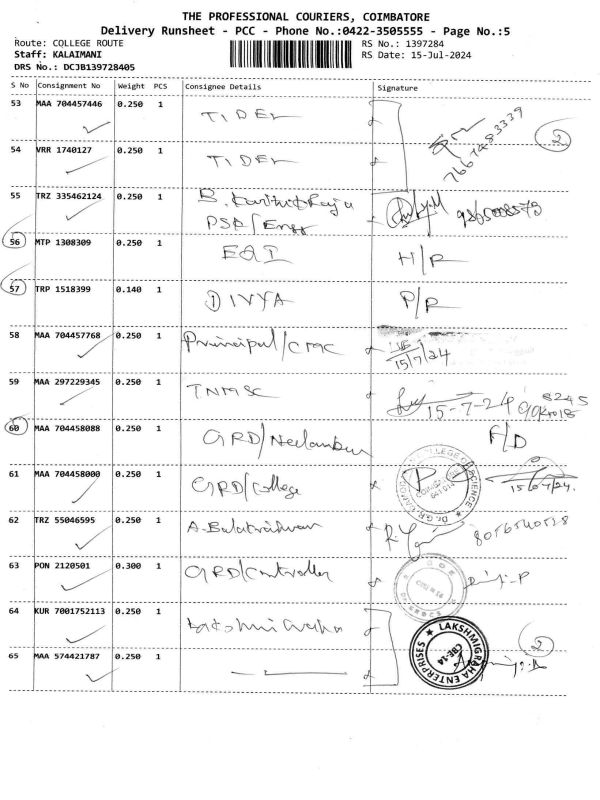 THE PROFESSIONAL COURIERS, COIMBATORE
Delivery Runsheet - PCC - Phone No.:0422-3505555 - Page No.:5
Route: COLLEGE ROUTE RS No.: 1397284
Staff: KALAIMANI RS Date: 15-Jul-2024
DRS No.: DCJB139728405
S No Consignment No Weight PCS Consignee Details Signature
53 MAA 704457446 0.250 1 TIDEL
7667483339 2
54 VRR 1740127 0.250 1 TIDEL
55 TRZ 335462124 0.250 1 B.
PSA/Engg
56 MTP 1308309 0.250 1 EQI H/R
57 TRP 1518399 0.140 1 DIVYA P/R
58 MAA 704457768 0.250 1 Principal/CMC 15/7/24
59 MAA 297229345 0.250 1 TNMSC 15-7-24
60 MAA 704458088 0.250 1 GRD/Neelambur F/D
61 MAA 704458000 0.250 1 GRD/College 15/07/24.
62 TRZ 55046595 0.250 1 A.
63 PON 2120501 0.300 1 GRD/Controller
64 KUR 7001752113 0.250 1 2
LAKSHMIGRAHA ENTERPRISES
CBE-14
65 MAA 574421787 0.250 1